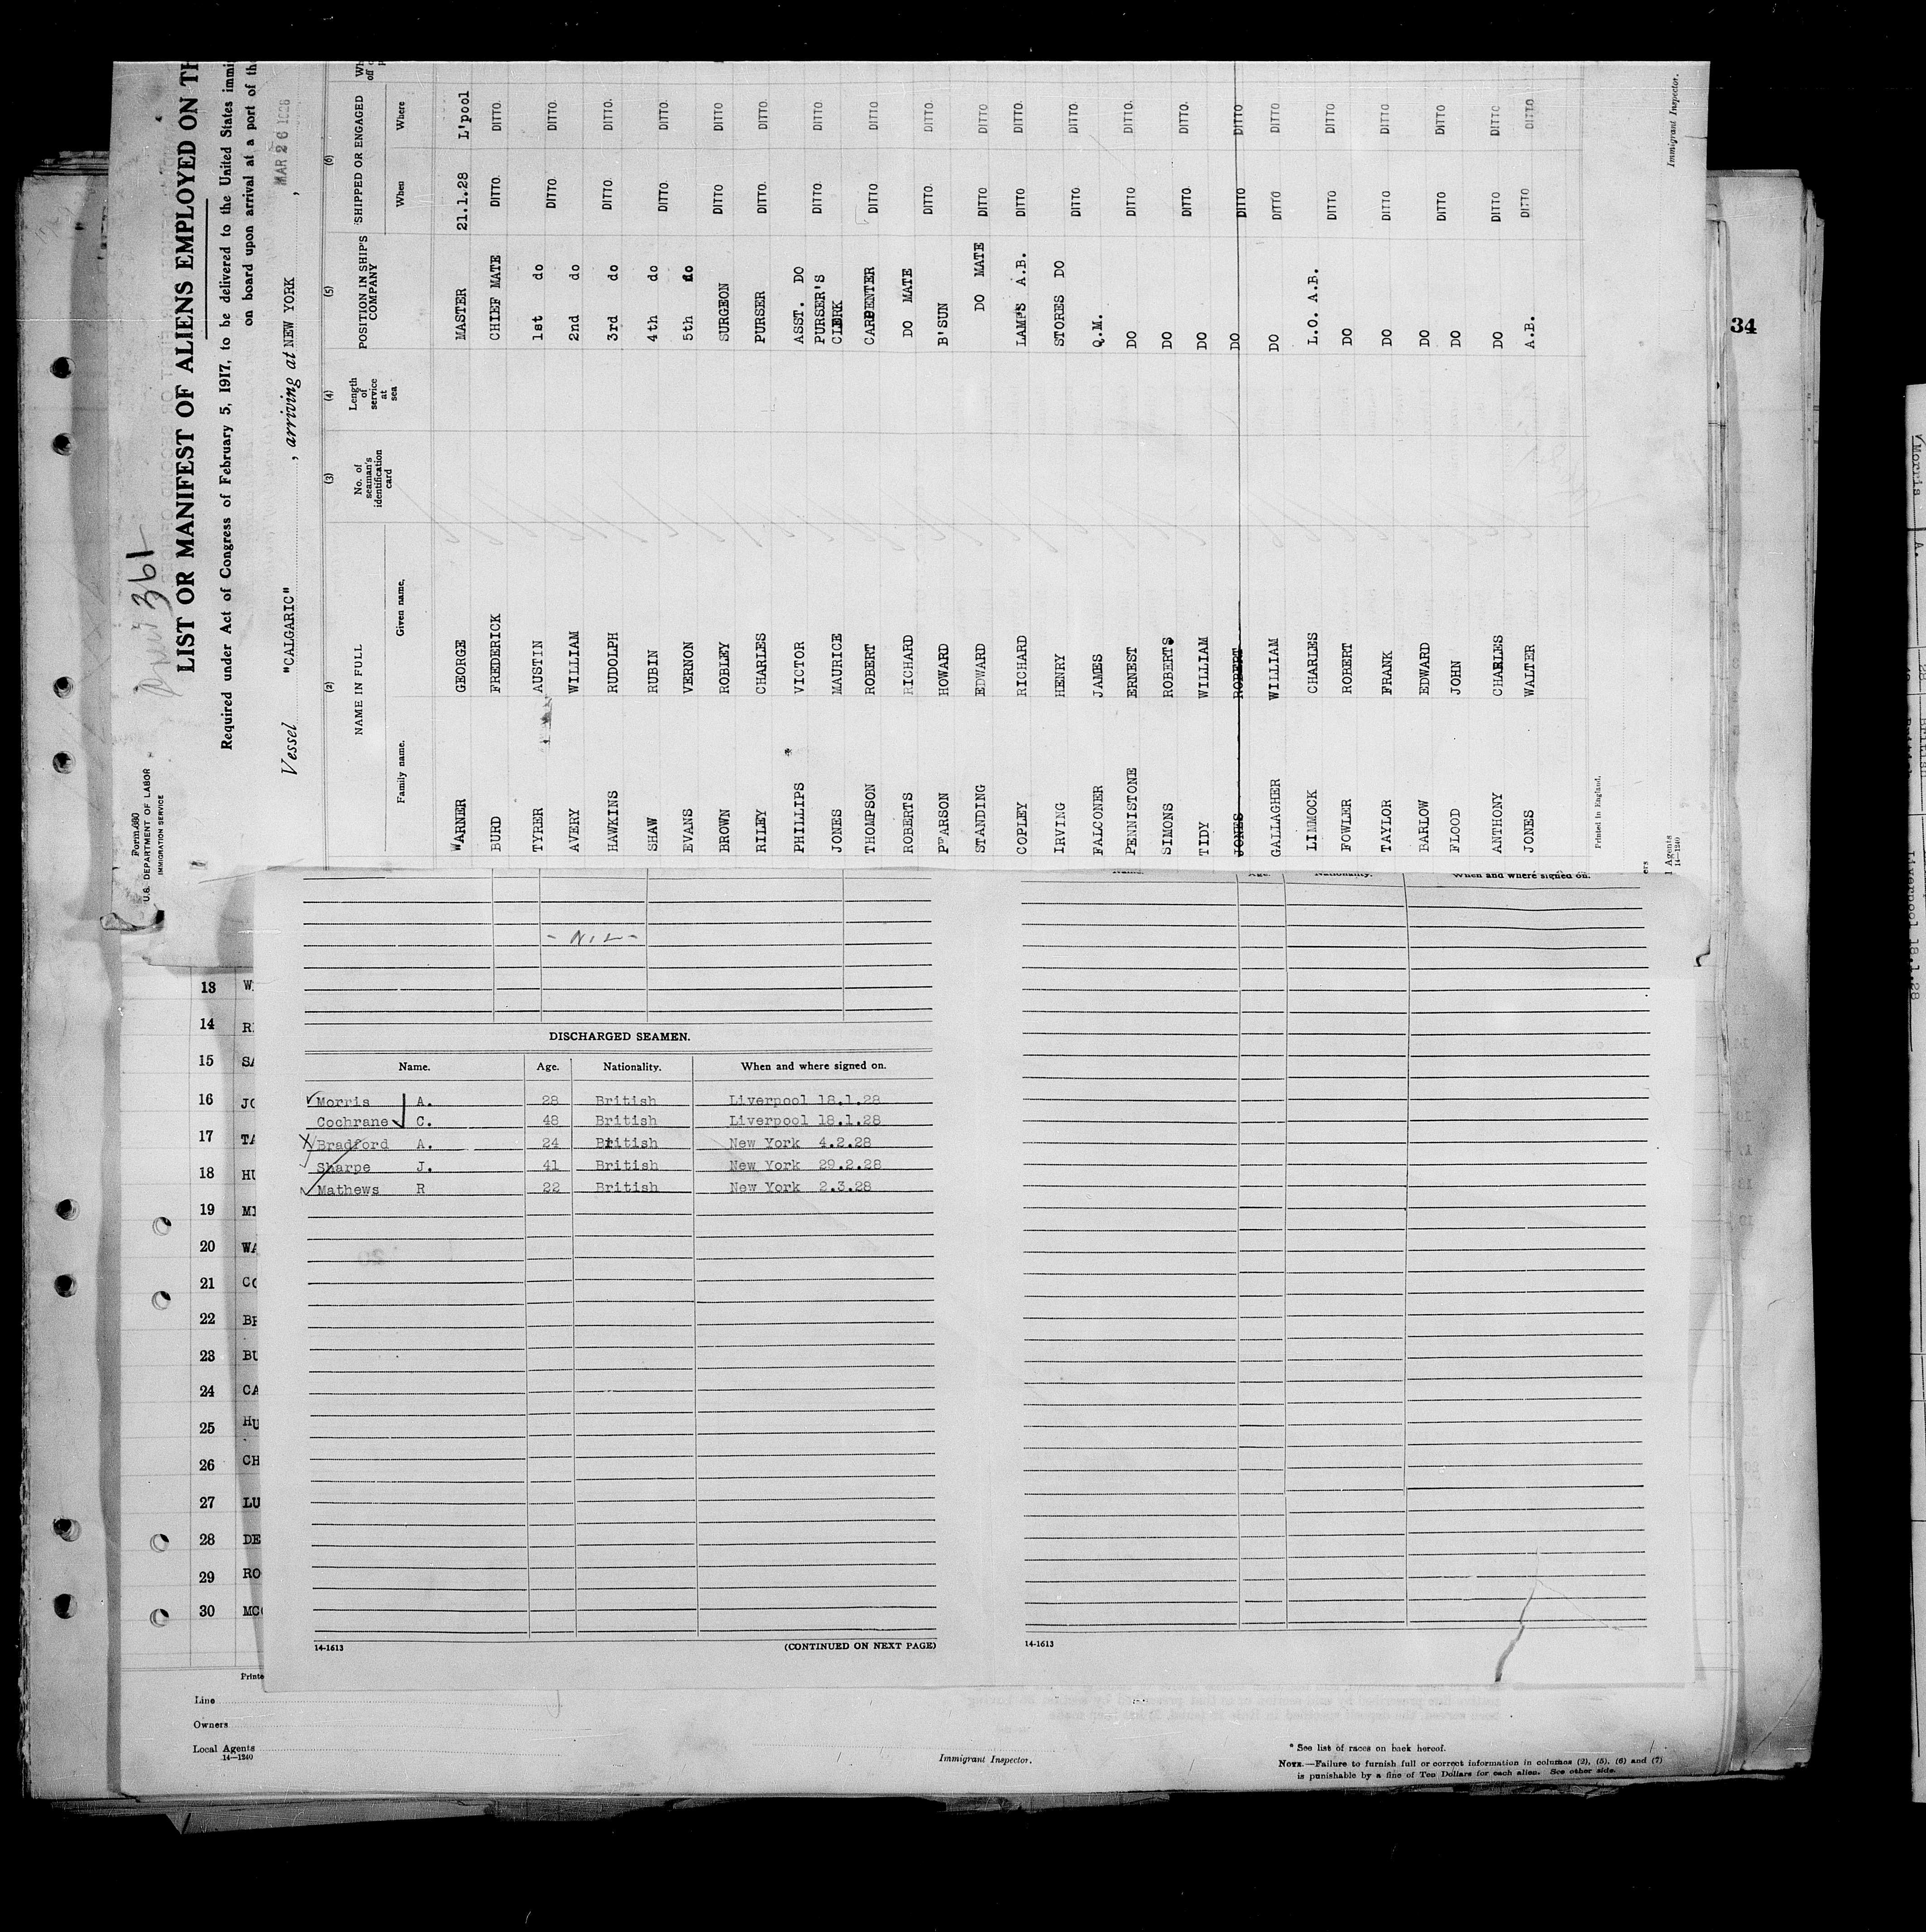 Form 680
U.S. DEPARTMENT OF LABOR
IMMIGRATION SERVICE
361
LIST OR MANIFEST OF ALIENS EMPLOYED ON TH
Required under Act of Congress of February 5, 1917, to be delivered to the United States immi
on board upon arrival at a port of th
Vessel "CALGARIC", arriving at NEW YORK, MAR 26 1928
(2) (3) (4) (5) (6)
NAME IN FULL No. of seaman's identification card Length of service at sea POSITION IN SHIP'S COMPANY SHIPPED OR ENGAGED Wh
Family name. Given name. When Where off
WARNER GEORGE MASTER 21.1.28 L'pool
BURD FREDERICK CHIEF MATE DITTO. DITTO.
TYRER AUSTIN 1st do DITTO. DITTO.
AVERY WILLIAM 2nd do DITTO. DITTO.
HAWKINS RUDOLPH 3rd do DITTO. DITTO.
SHAW RUBIN 4th do DITTO. DITTO.
EVANS VERNON 5th do
BROWN ROBLEY SURGEON DITTO. DITTO
RILEY CHARLES PURSER DITTO. DITTO.
PHILLIPS VICTOR ASST. DO DITTO. DITTO.
JONES MAURICE PURSER'S CLERK
THOMPSON ROBERT CARPENTER DITTO DITTO
ROBERTS RICHARD DO MATE
PEARSON HOWARD B'SUN DITTO. DITTO.
STANDING EDWARD DO MATE DITTO DITTO
COPLEY RICHARD LAMPS A.B. DITTO DITTO.
IRVING HENRY STORES DO DITTO DITTO
FALCONER JAMES Q.M.
PENNISTONE ERNEST DO DITTO DITTO.
SIMONS ROBERTS DO
TIDY WILLIAM DO DITTO DITTO.
JONES ROBERT DO DITTO DITTO
GALLAGHER WILLIAM DO DITTO DITTO
LIMMOCK CHARLES L.O. A.B.
FOWLER ROBERT DO DITTO DITTO
TAYLOR FRANK DO DITTO DITTO
BARLOW EDWARD DO
FLOOD JOHN DO DITTO DITTO
ANTHONY CHARLES DO DITTO DITTO
JONES WALTER A.B. DITTO DITTO
Printed in England.
Immigrant Inspector.
ers
l Agents
14-1240
34
Name. Age. Nationality. When and where signed on.
- NIL -
DISCHARGED SEAMEN.
Name. Age. Nationality. When and where signed on.
Morris A. 28 British Liverpool 18.1.28
Cochrane C. 48 British Liverpool 18.1.28
Bradford A. 24 British New York 4.2.28
Sharpe J. 41 British New York 29.2.28
Mathews R 22 British New York 2.3.28
14-1613 (CONTINUED ON NEXT PAGE)
14-1613
13 W
14 R
15 SA
16 JO
17 TA
18 HU
19 MI
20 WA
21 CO
22 BR
23 BU
24 CA
25 HU
26 CH
27 LU
28 DE
29 RO
30 MC
Printe
Line
Owners
Local Agents
14—1240
Immigrant Inspector.
* See list of races on back hereof.
NOTE.—Failure to furnish full or correct information in columns (2), (5), (6) and (7)
is punishable by a fine of Ten Dollars for each alien. See other side.
Morris A. 28 British Liverpool 18.1.28